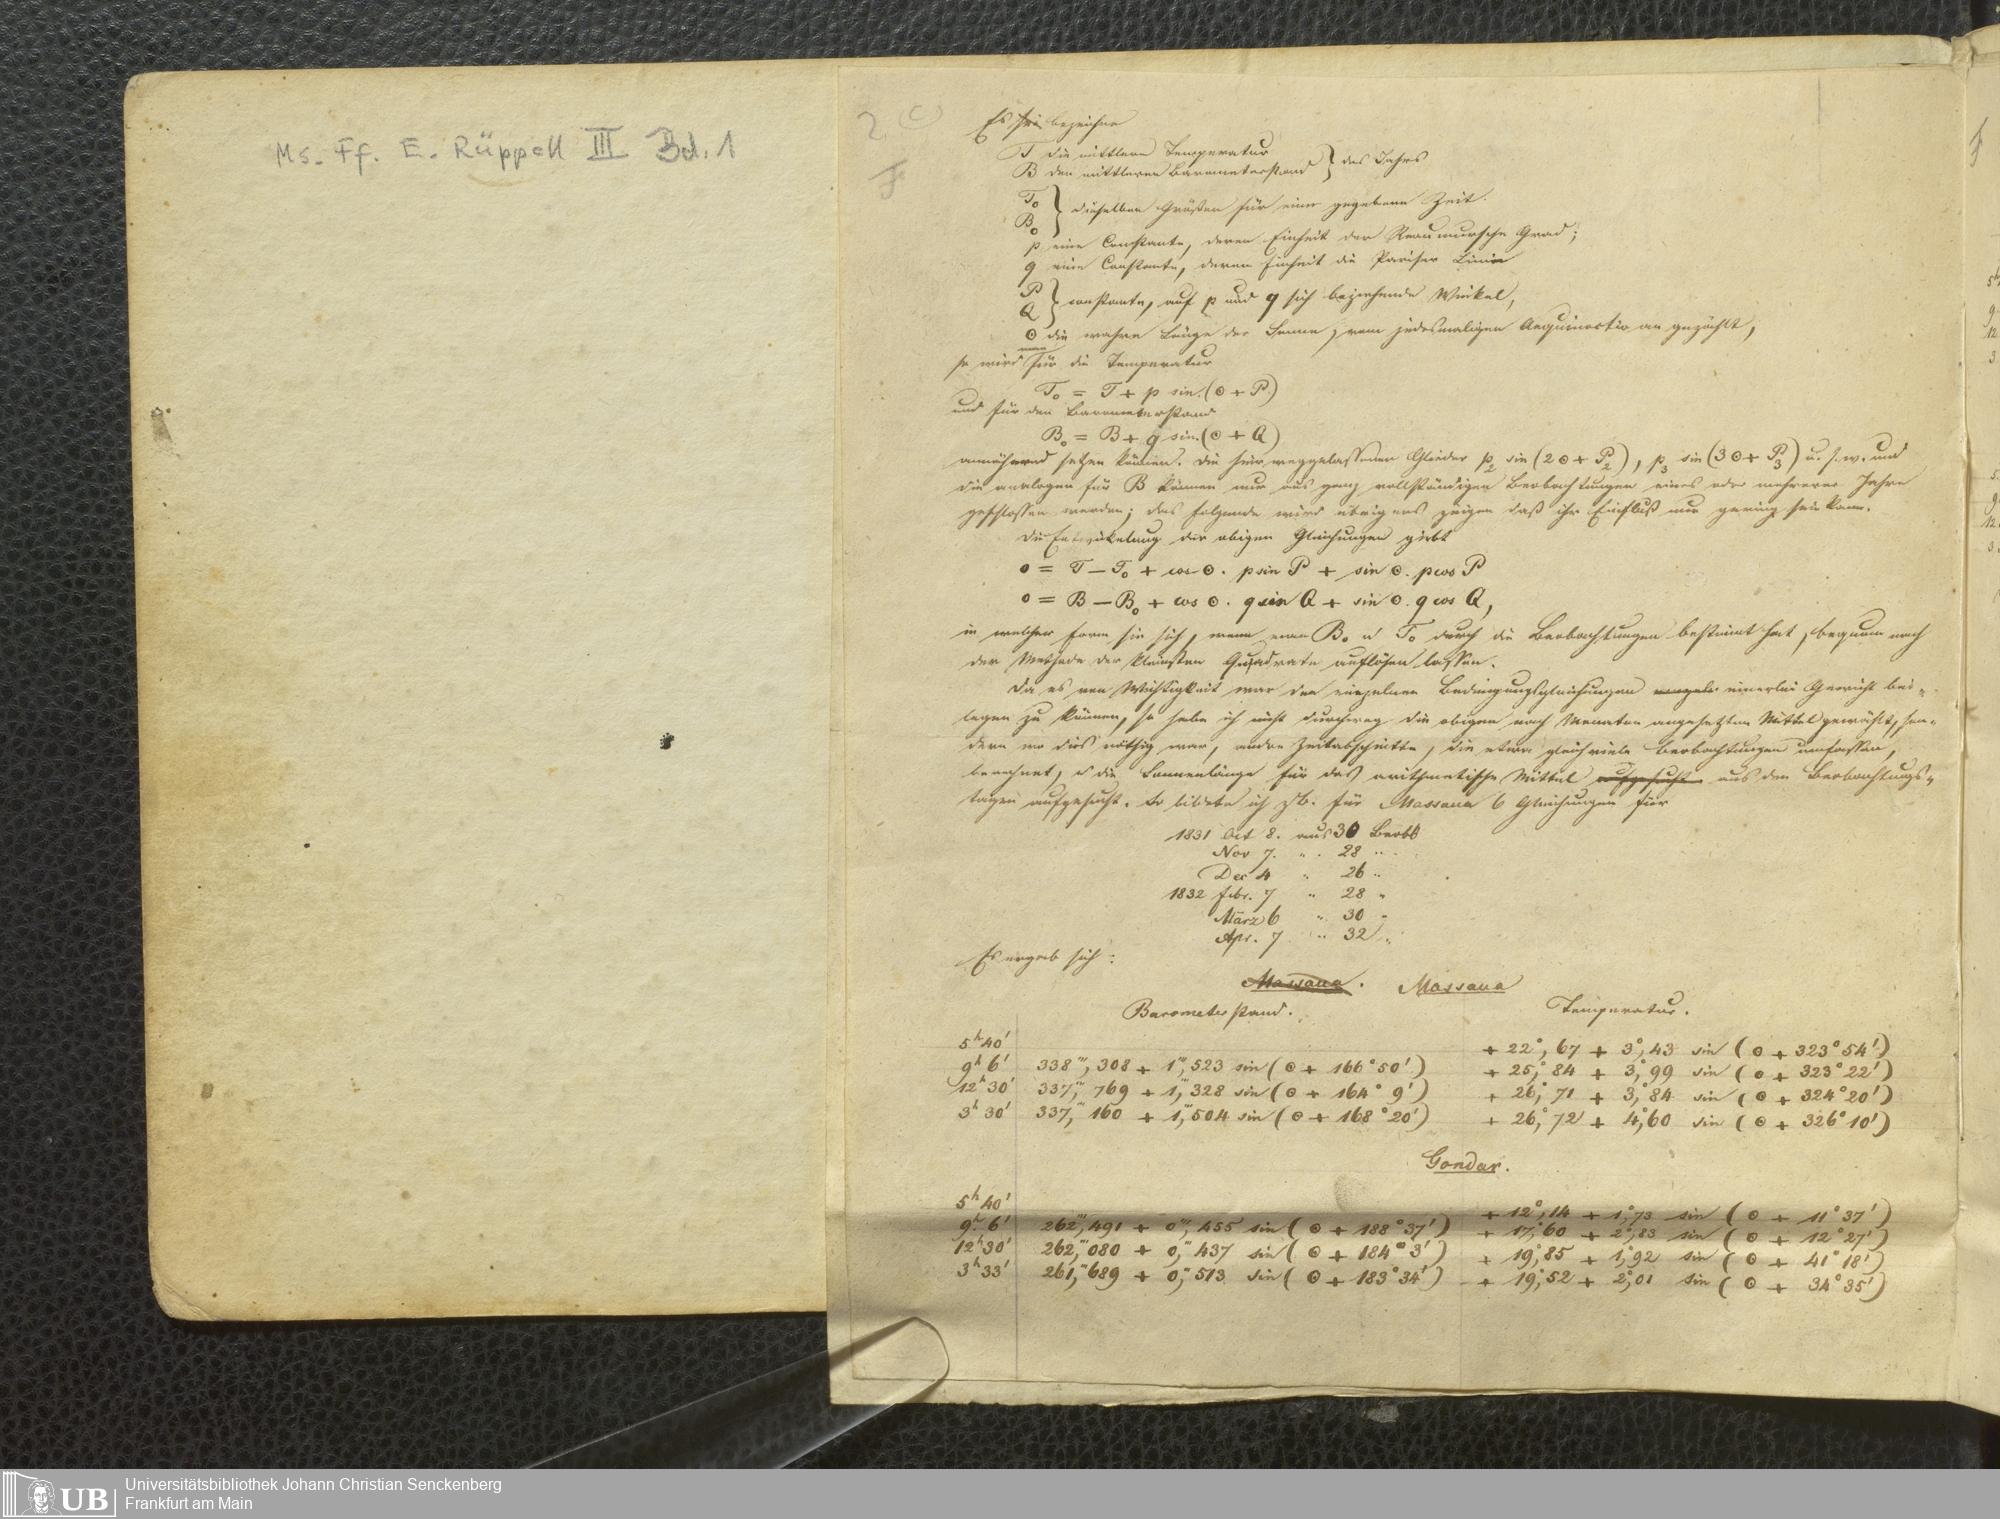 Ms. Ff. E. Rüppell III Bd. 1
2. C
F
Es sei bezeichne
T die mittlere Temperatur
B den mittleren Barometerstand } des Jahrs
T₀
B₀ } dieselben Größen für eine gegebene Zeit.
p eine Constante, deren Einheit der Reaumursche Grad;
q eine Constante, deren Einheit die Pariser Linie
P
Q } constante, auf p und q sich beziehende Winkel,
⊙ die wahre Länge der Sonne, vom jedesmaligen Aequinoctio an gezählt,
so wird man für die Temperatur
T₀ = T + p sin. (⊙ + P)
und für den Barometerstand
B₀ = B + q sin. (⊙ + Q)
annähernd setzen können. Die hier weggelassenen Glieder p₂ sin (2⊙ + P₂), p₃ sin (3⊙ + P₃) u. s. w. und
die analogen für B können nur aus ganz vollständigen Beobachtungen eines oder mehrerer Jahre
geschlossen werden; das folgende wird übrigens zeigen daß ihr Einfluß nur gering sein kann.
Die Entwickelung der obigen Gleichungen giebt
0 = T − T₀ + cos ⊙. p sin P + sin ⊙. p cos P
0 = B − B₀ + cos ⊙. q sin Q + sin ⊙. q cos Q,
in welcher Form sie sich, wenn man B₀ u T₀ durch die Beobachtungen bestimmt hat, bequem nach
der Methode der kleinsten Quadrate auflösen lassen.
Da es von Wichtigkeit war den einzelnen Bedingungsgleichungen einerlei Gewicht bei-
legen zu können, so habe ich nicht durchweg die obigen nach Monaten angesetzten Mittel gewählt, son-
dern wo dies nöthig war, andre Zeitabschnitte, die etwa gleichviele Beobachtungen umfassen,
berechnet, u die Sonnenlänge für das arithmetische Mittel aufgesucht aus den Beobachtungs-
tagen aufgesucht. So bildete ich zb. für Massaua 6 Gleichungen für
1831 Oct 8. aus 30 Beobb
Nov 7. " 28 "
Dec 4 " 26 "
1832 Febr. 7 " 28 "
März 6 " 30 "
Apr. 7 " 32 "
Es ergab sich:
Massaua. Massaua
Barometerstand. Temperatur.
5ʰ 40' + 22°,67 + 3°,43 sin (⊙ + 323° 54')
9ʰ 6' 338''',308 + 1''',523 sin (⊙ + 166° 50') + 25°,84 + 3°,99 sin (⊙ + 323° 22')
12ʰ 30' 337''',769 + 1''',328 sin (⊙ + 164° 9') + 26°,71 + 3°,84 sin (⊙ + 324° 20')
3ʰ 30' 337''',160 + 1''',504 sin (⊙ + 168° 20') + 26°,72 + 4°,60 sin (⊙ + 326° 10')
Gondar.
5ʰ 40' + 12°,14 + 1°,73 sin (⊙ + 11° 37')
9ʰ 6' 262''',491 + 0''',455 sin (⊙ + 188° 37') + 17°,60 + 2°,83 sin (⊙ + 12° 27')
12ʰ 30' 262''',080 + 0''',437 sin (⊙ + 184° 3') + 19°,85 + 1°,92 sin (⊙ + 41° 18')
3ʰ 33' 261''',689 + 0''',513 sin (⊙ + 183° 34') + 19°,52 + 2°,01 sin (⊙ + 34° 35')
UB
Universitätsbibliothek Johann Christian Senckenberg
Frankfurt am Main